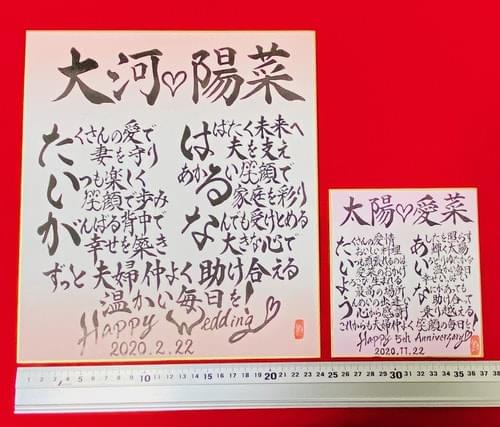 大河♡陽菜
たくさんの愛で
妻を守り
いつも楽しく
笑顔で歩み
がんばる背中で
幸せを築き
はばたく未来へ
夫を支え
るあかるい笑顔で
家庭を彩り
なんでも受けとめる
大きな心で
ずっと夫婦仲よく助け合える
温かい毎日を!
Happy Wedding♡
2020.2.22
大陽♡愛菜
たくさんの愛情
おいしい料理
いつも頑張れるのは
愛菜のおかげ
うんめいの出逢い
心から感謝
あしたを照らす
輝く太陽
い
温かい毎日
なにがあっても
助け合って
乗り越える
これからも夫婦仲よく笑顔の毎日を!
Happy 5th Anniversary♡
2020.11.22
1 2 3 4 5 6 7 8 9 10 11 12 13 14 15 16 17 18 19 20 21 22 23 24 25 26 27 28 29 30 31 32 33 34 35 36 37 38